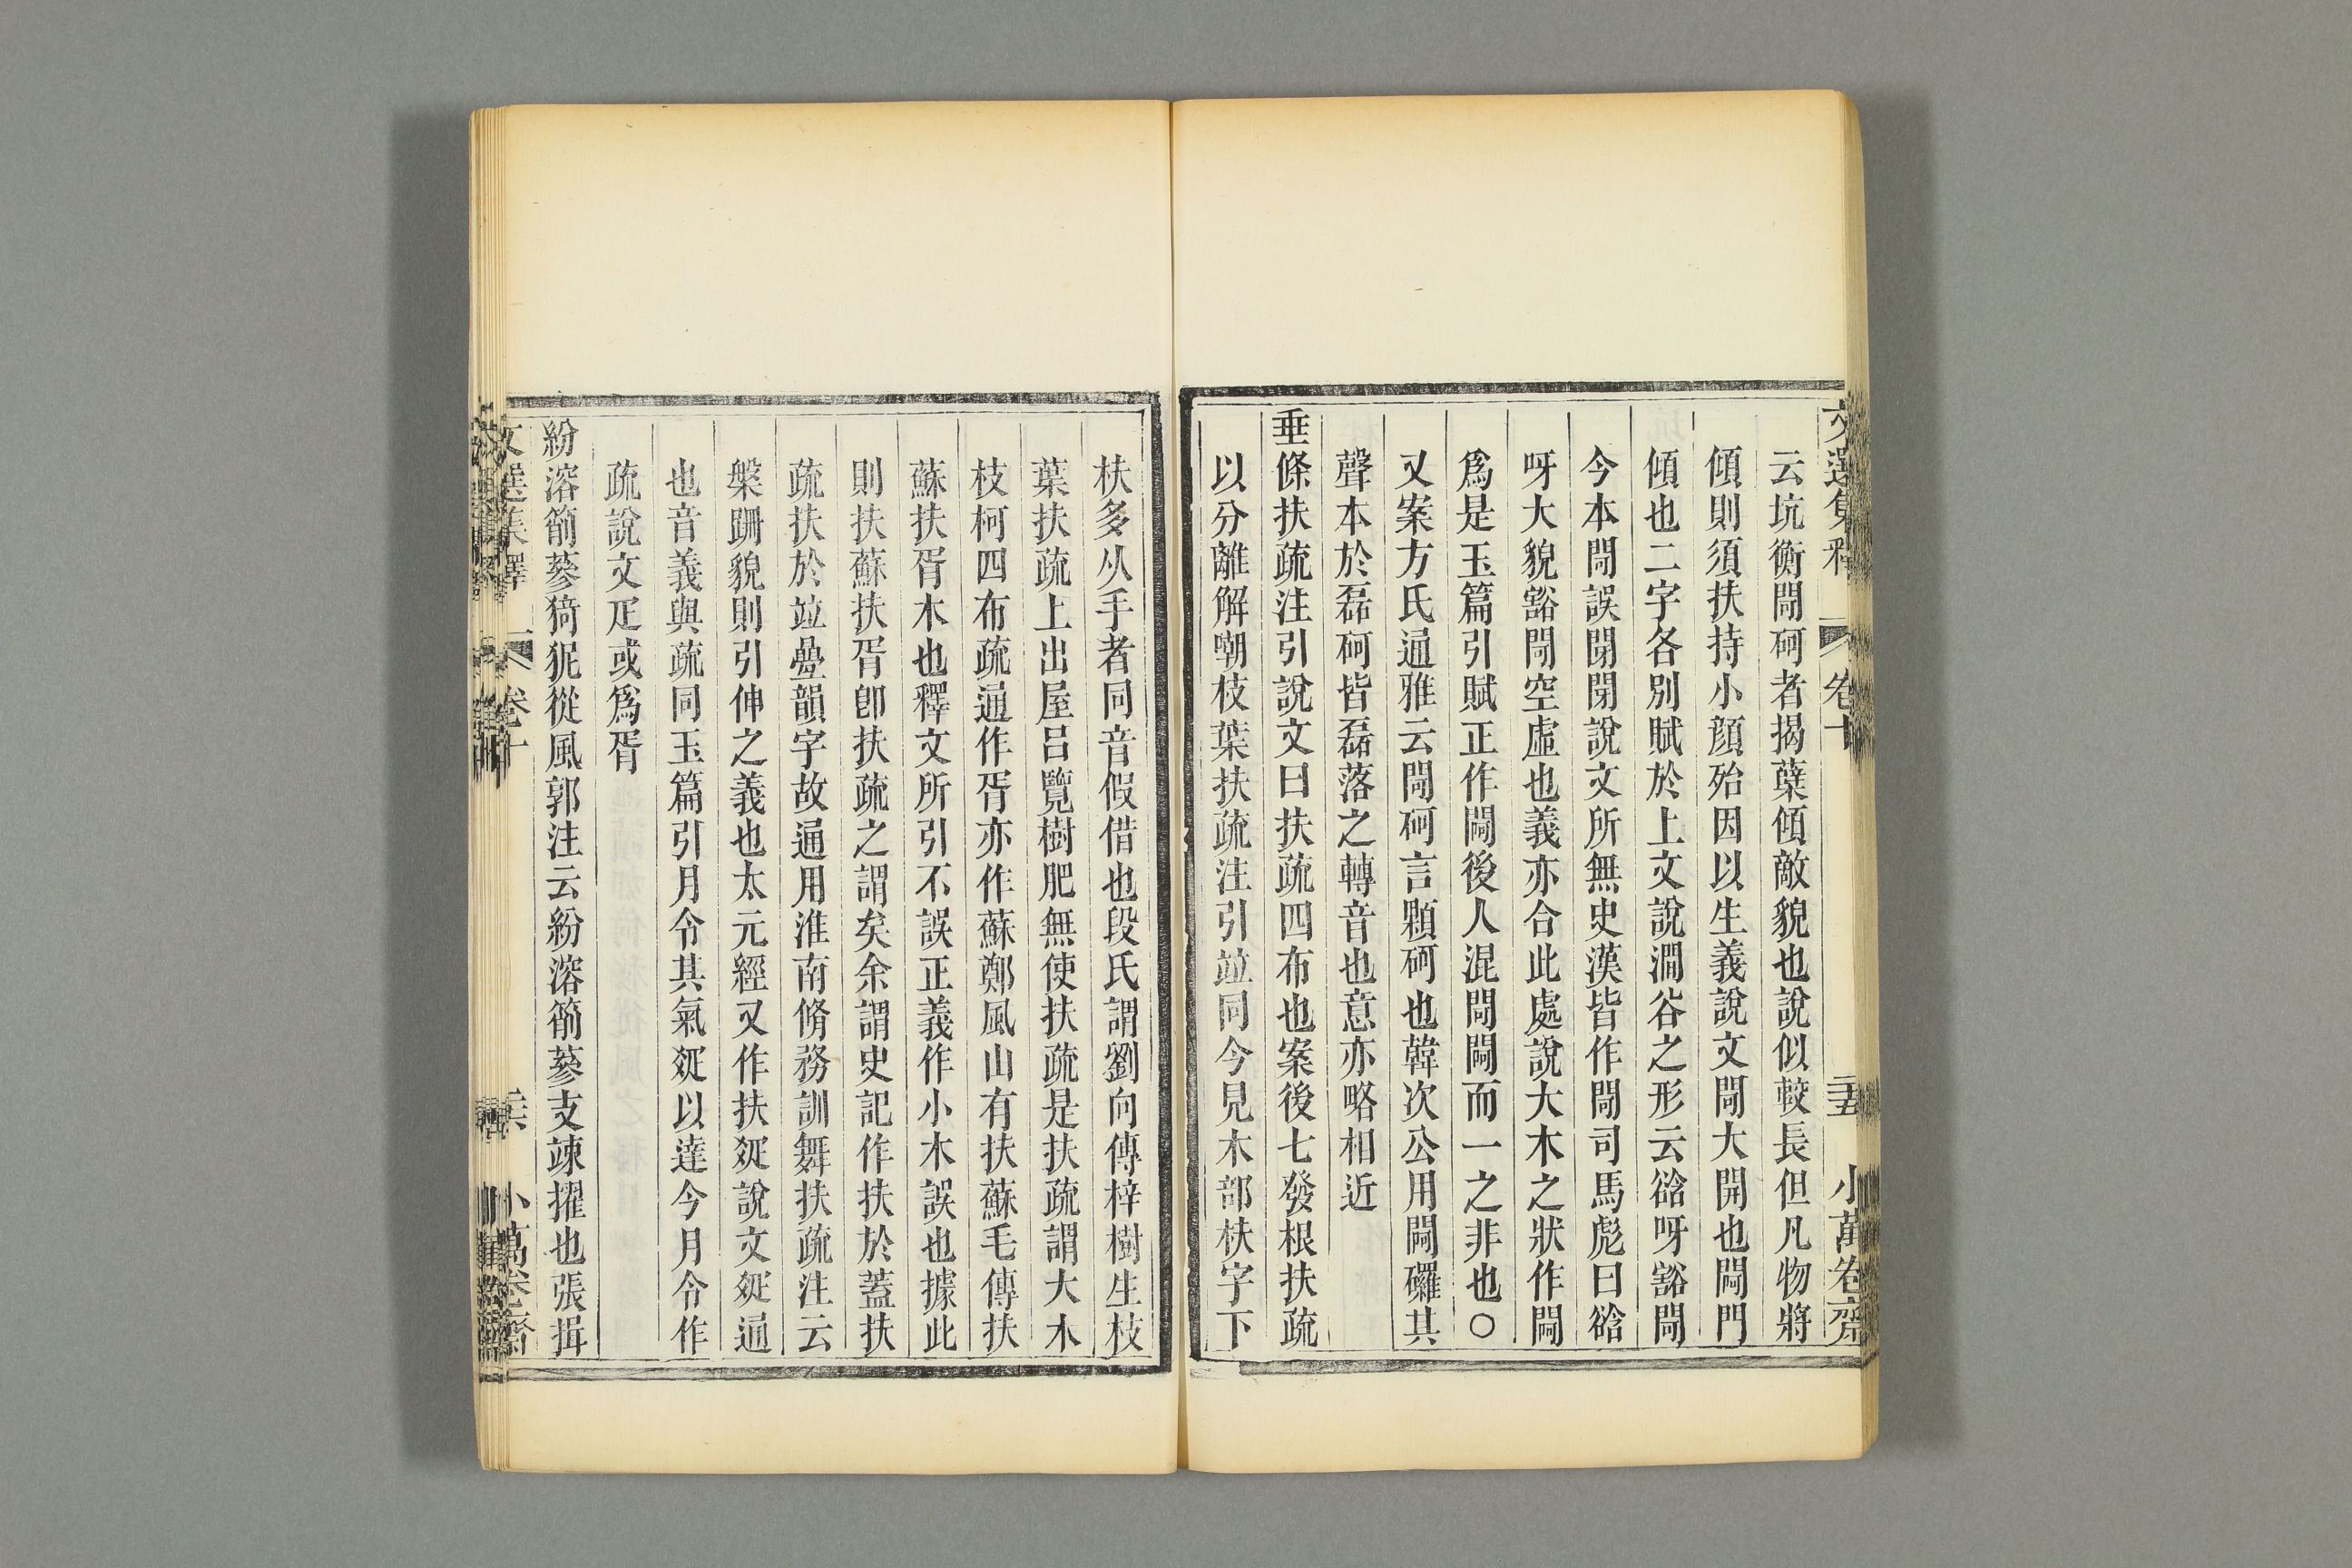 文選集釋 卷十 二十五 小萬卷齋
云坑衡閜砢者揭蘖傾敵貌也說似較長但凡物將
傾則須扶持小顏殆因以生義說文閜大開也閜門
傾也二字各別賦於上文說澗谷之形云谽呀豁閜
今本閜誤閉閉說文所無史漢皆作閜司馬彪曰谽
呀大貌豁閜空虛也義亦合此處說大木之狀作閜
爲是玉篇引賦正作閜後人混閜閜而一之非也〇
又案方氏通雅云閜砢言顆砢也韓次公用閜礹其
聲本於磊砢皆磊落之轉音也意亦略相近
垂條扶疏注引說文曰扶疏四布也案後七發根扶疏
以分離解嘲枝葉扶疏注引竝同今見木部枎字下
枎多从手者同音假借也段氏謂劉向傳梓樹生枝
葉扶疏上出屋呂覽樹肥無使扶疏是扶疏謂大木
枝柯四布疏通作胥亦作蘇鄭風山有扶蘇毛傳扶
蘇扶胥木也釋文所引不誤正義作小木誤也據此
則扶蘇扶胥卽扶疏之謂矣余謂史記作扶於蓋扶
疏扶於竝疊韻字故通用淮南脩務訓舞扶疏注云
槃跚貌則引伸之義也太元經又作扶㽰說文㽰通
也音義與疏同玉篇引月令其氣㽰以達今月令作
疏說文疋或爲胥
紛溶箾蔘猗狔從風郭注云紛溶箾蔘支竦擢也張揖
文選集釋 卷十 二十六 小萬卷齋